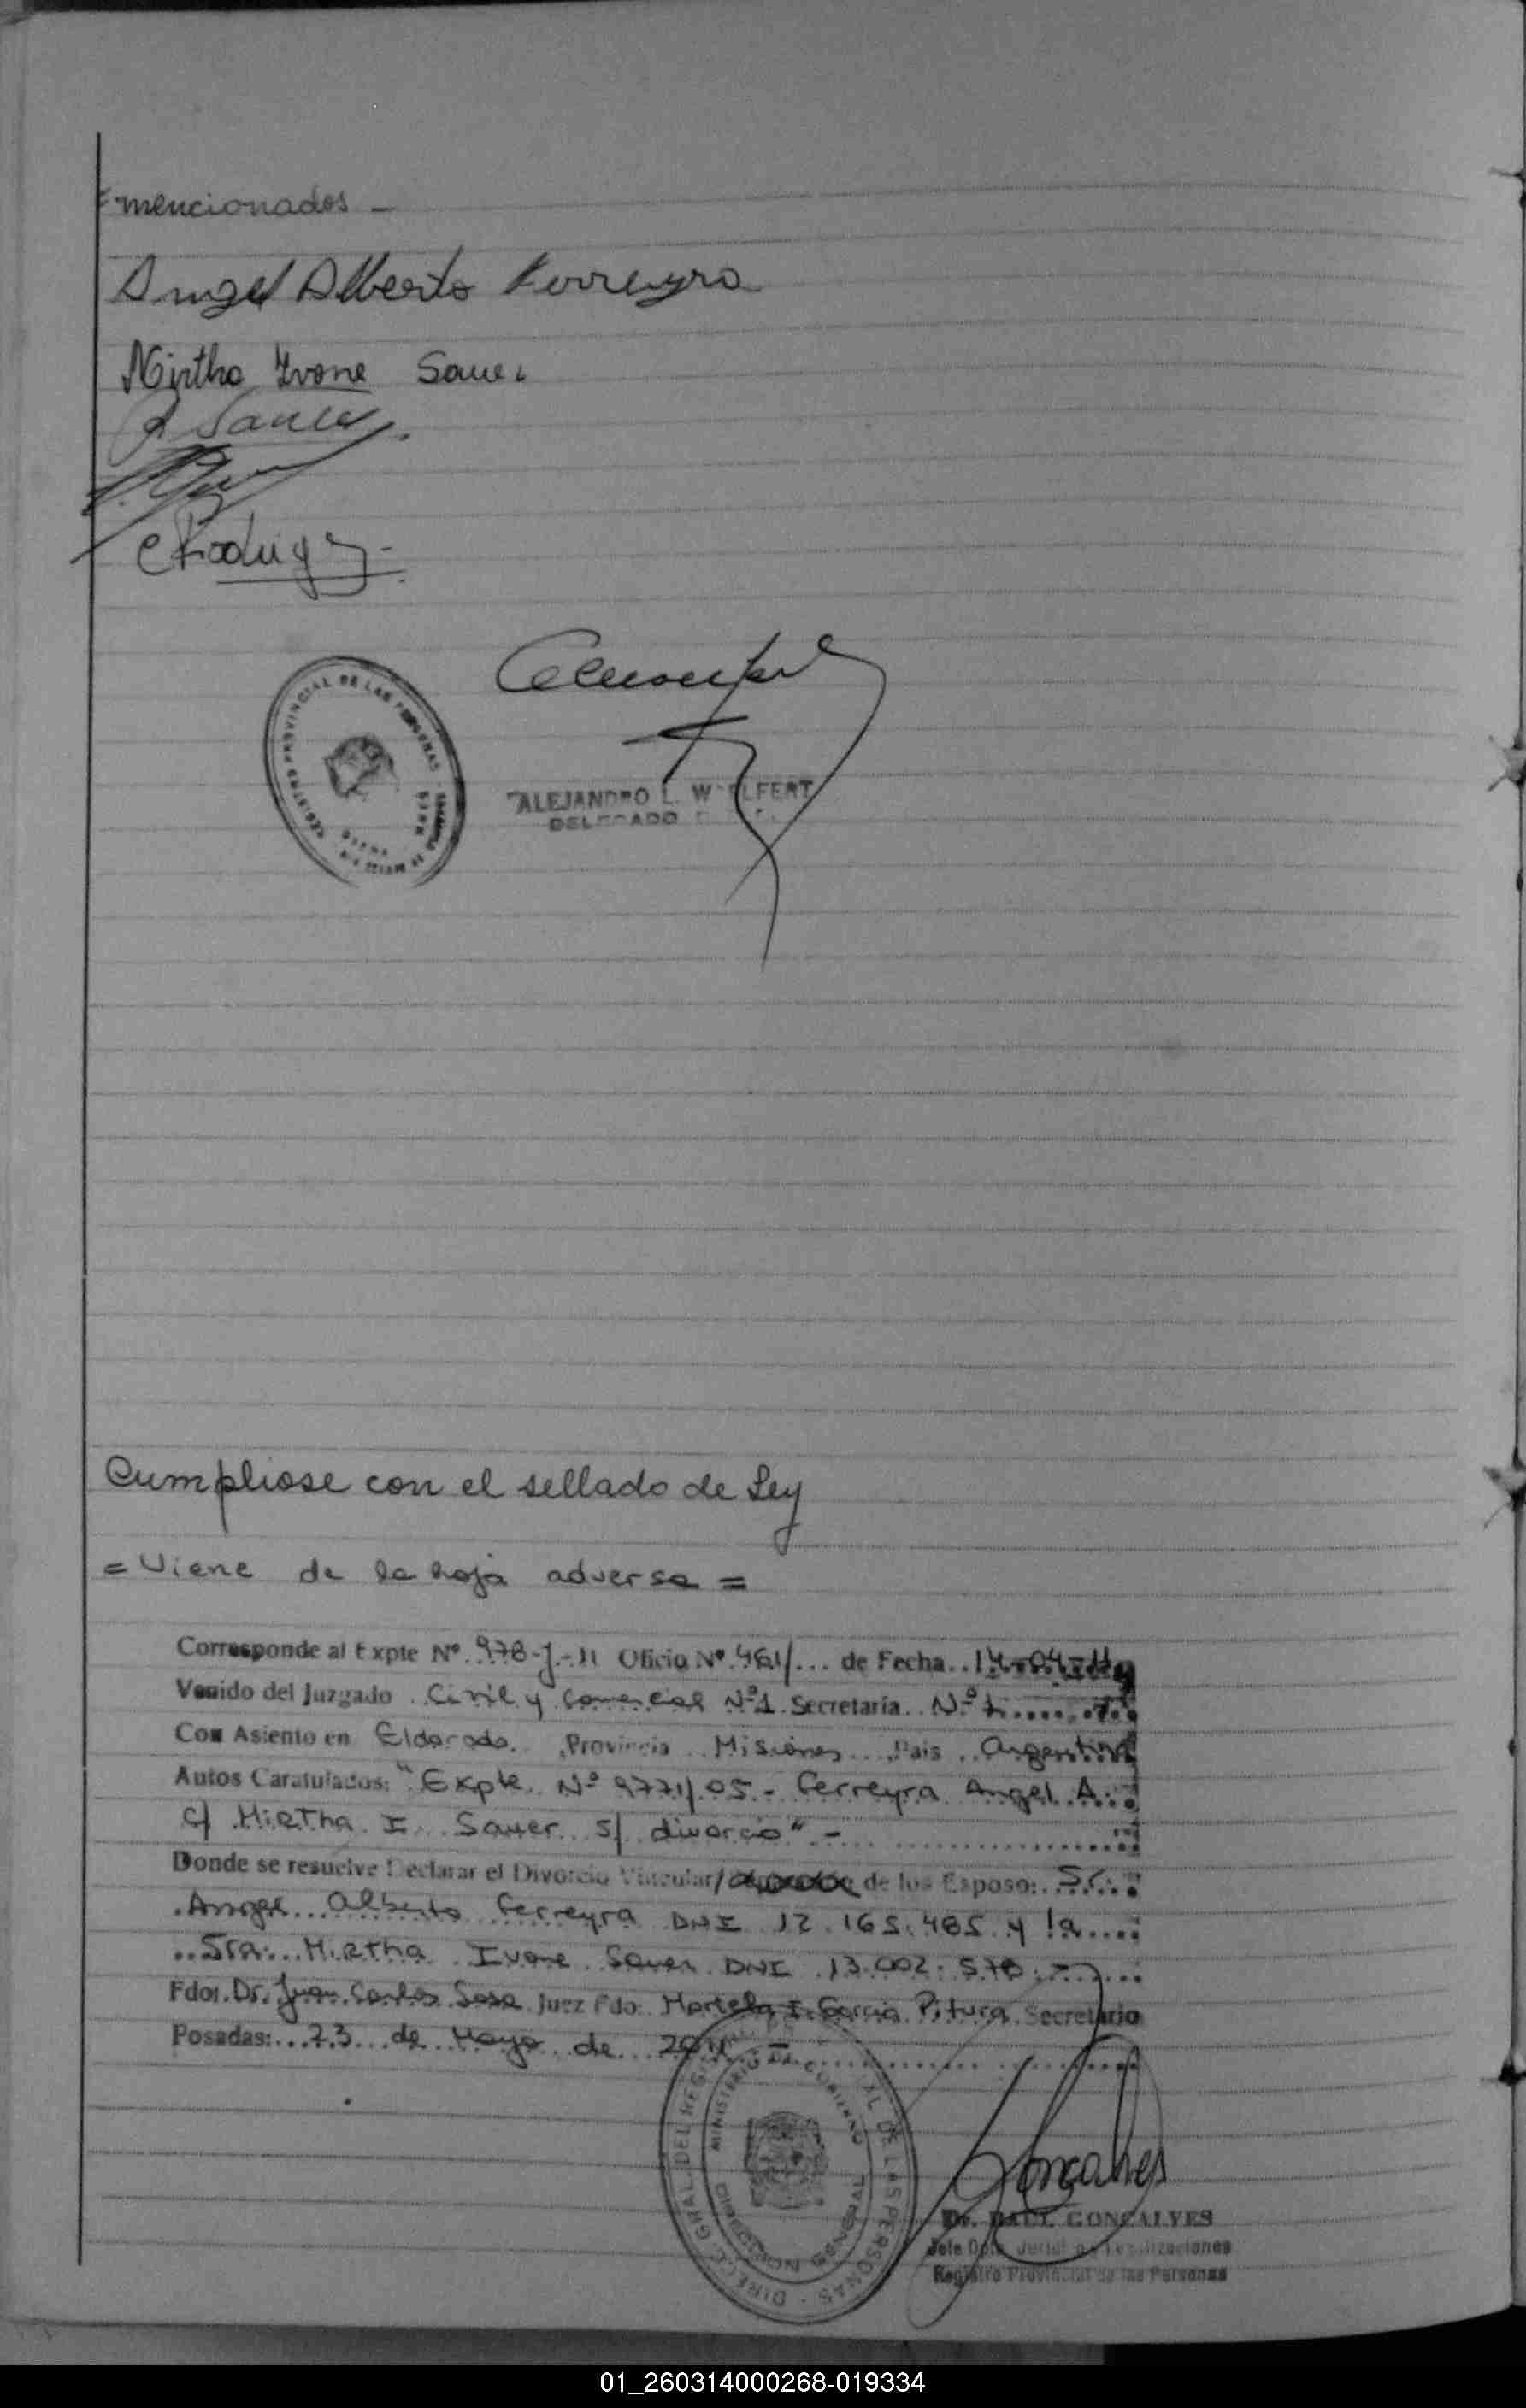 mencionados -
Angel Alberto Ferreyra
Mirtha Ivone Sauer
Sauer
C Rodrig
REGISTRO PROVINCIAL DE LAS PERSONAS
ALEJANDRO L. W LFERT
DELEGADO
Cumpliose con el sellado de Ley
= Viene de la hoja adversa =
Corresponde al Expte Nº 978-J-11 Oficio Nº 461/... de Fecha..14-04-11
Venido del Juzgado Civil y Comercial Nº1 Secretaría Nº 1
Con Asiento en Eldorado, Provincia Misiones País Argentina
Autos Caratulados: "Expte. Nº 9771/05 - Ferreyra Angel A.
c/ Mirtha I. Sauer s/ divorcio" -
Donde se resuelve Declarar el Divorcio Vincular/ de los Esposo: Sr.
Angel Alberto Ferreyra DNI 12.165.485 y la
Sra. Mirtha Ivone Sauer DNI 13.002.578.-
Fdo: Dr. Juan Carlos Sosa Juez Fdo: Marcela I. Garcia Pitura Secretario
Posadas: 23 de Mayo de 2011 -
DIREC. GRAL. DEL REG. DE LAS PERSONAS
MINISTERIO DE GOBIERNO
Gonçalves
Dr. RAUL GONCALVES
Jefe Dpto. Legalizaciones
Registro Provincial de las Personas
01_260314000268-019334